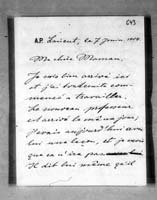 643
A.P. Laurent, le 7 juin
Ma chère Maman,
Je suis bien arrivé ici
et j'ai
commencé à travailler.
Le nouveau professeur
est arrivé le même jour,
j'avais aujourd'hui avec
lui une leçon, et je crois
que ça n'ira pas
Il dit lui même qu'il